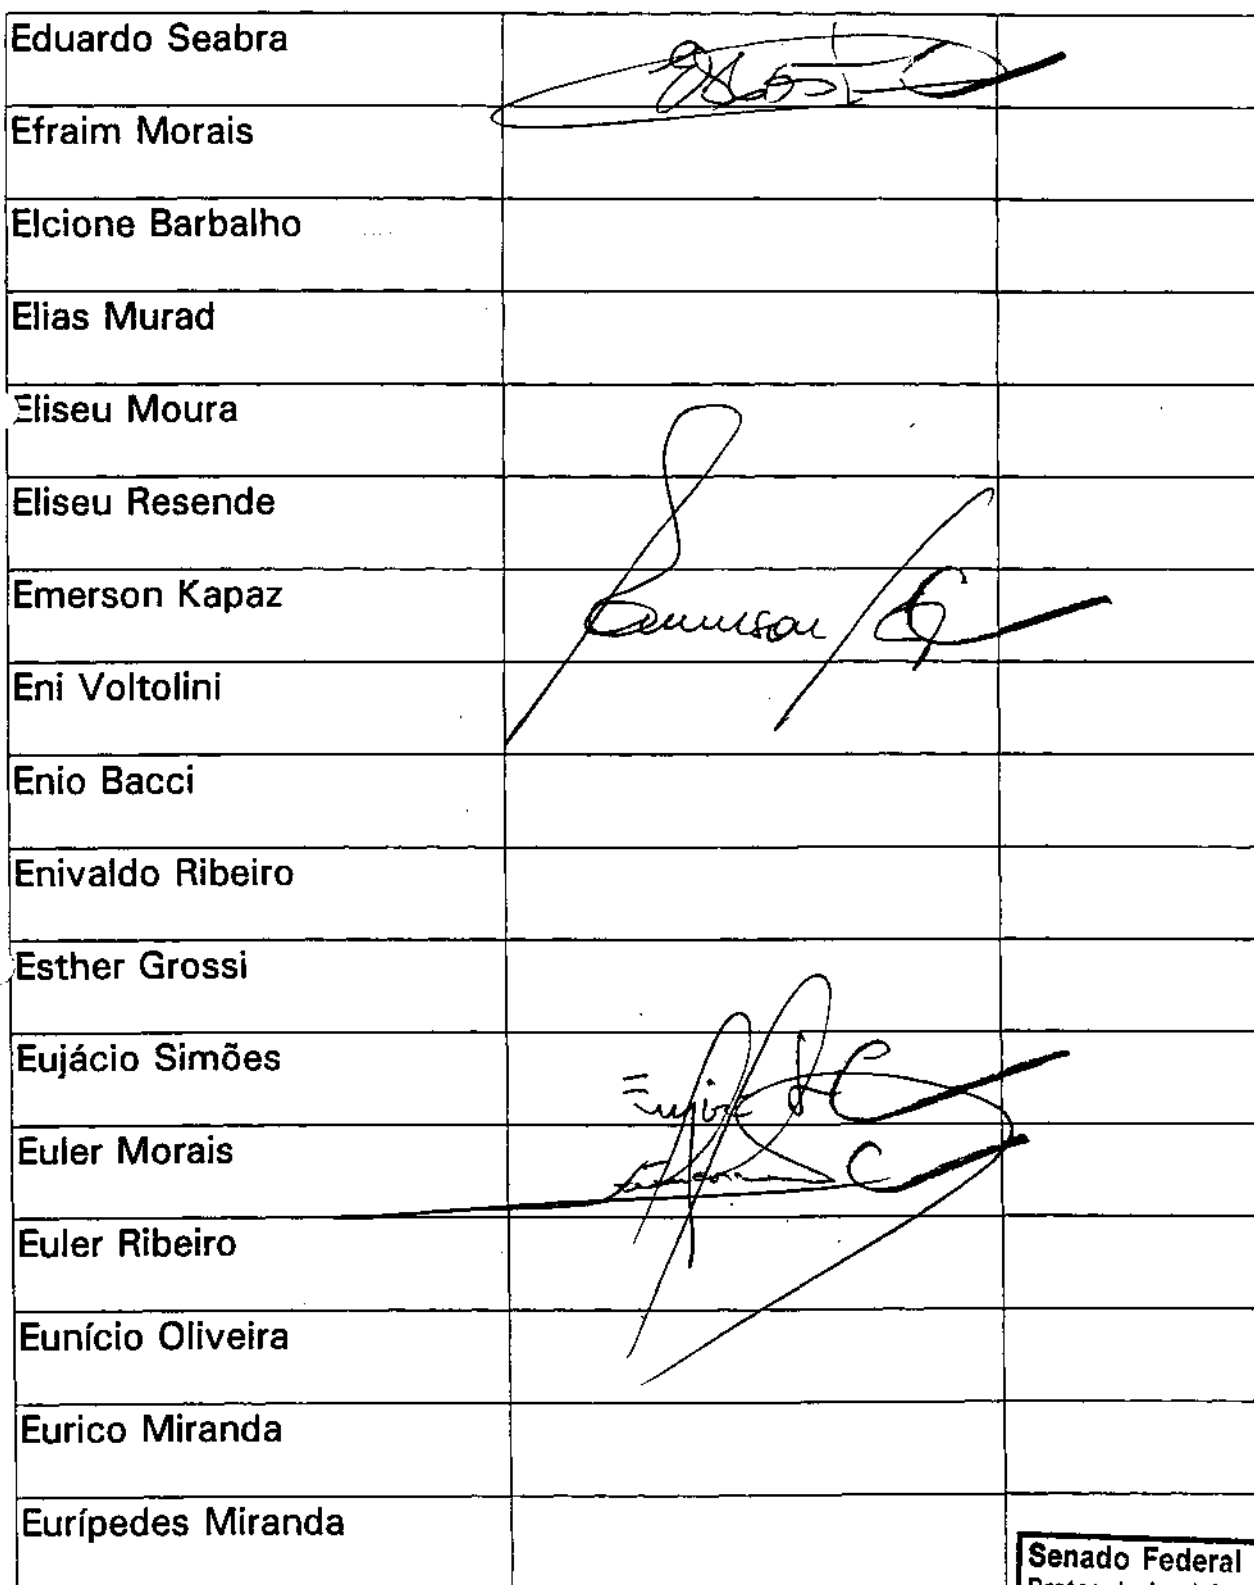 Eduardo Seabra
Efraim Morais
Elcione Barbalho
Elias Murad
Eliseu Moura
Eliseu Resende
Emerson Kapaz
Emerson
Eni Voltolini
Enio Bacci
Enivaldo Ribeiro
Esther Grossi
Eujácio Simões
Euler Morais
Euler Ribeiro
Eunício Oliveira
Eurico Miranda
Eurípedes Miranda
Senado Federal